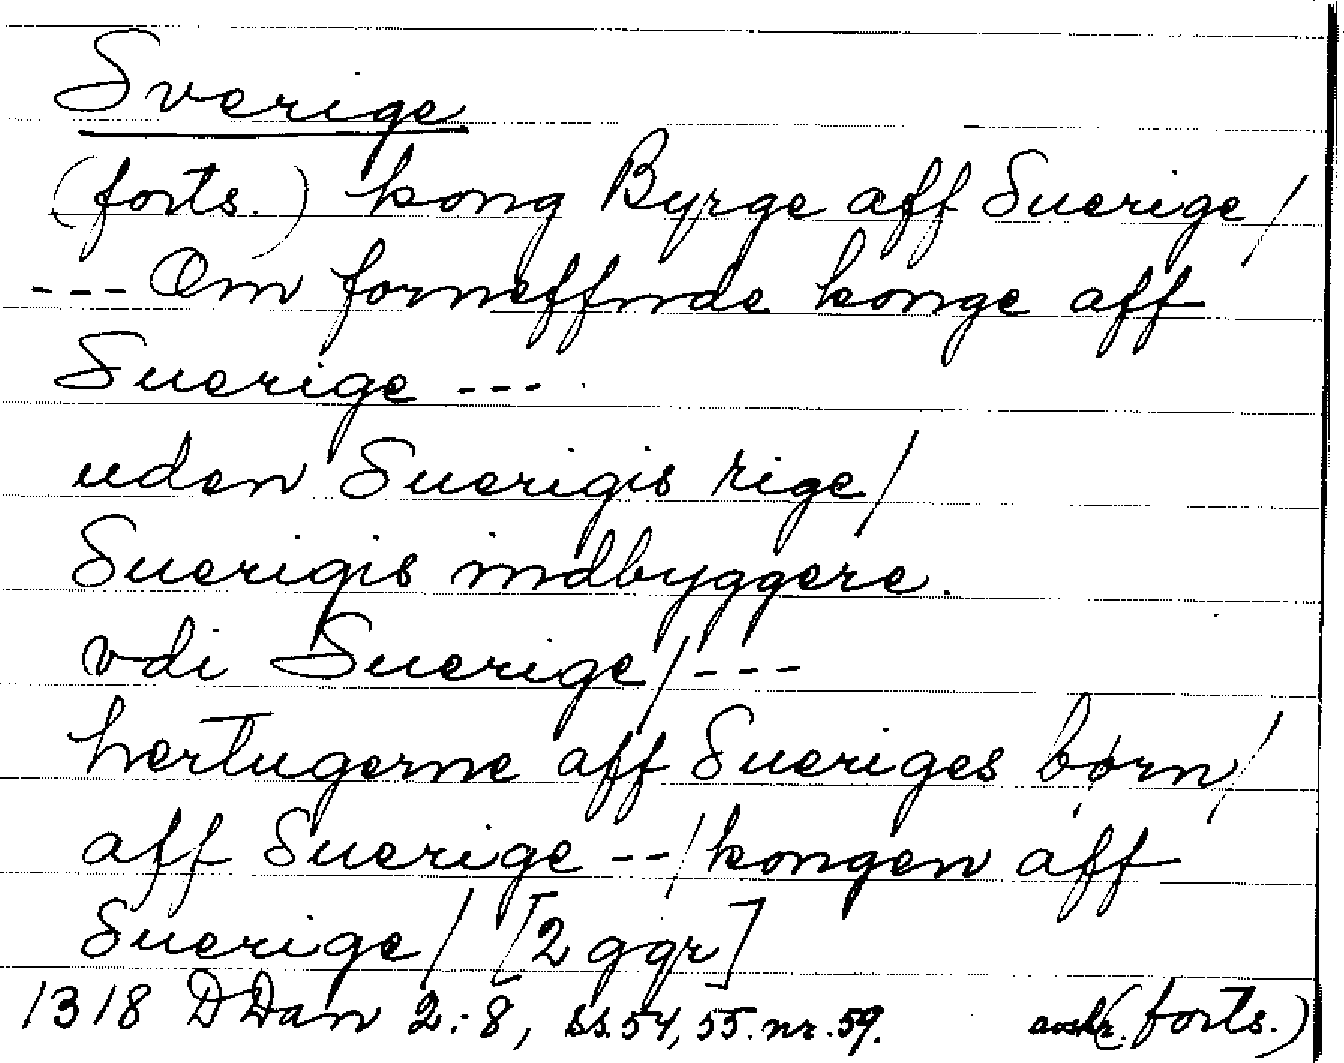 Sverige
(forts.) kong Byrge aff Suerige/
--- Om forneffnde konge aff
Suerige ---
uden Suerigis rige/
Suerigis indbyggere.
vdi Suerige/---
hertugerne aff Sueriges børn/
aff Suerige --/kongen aff
Suerige/ [2 ggr]
1318 DDan 2:8, ss.54, 55. nr. 59. avskr. (forts.)